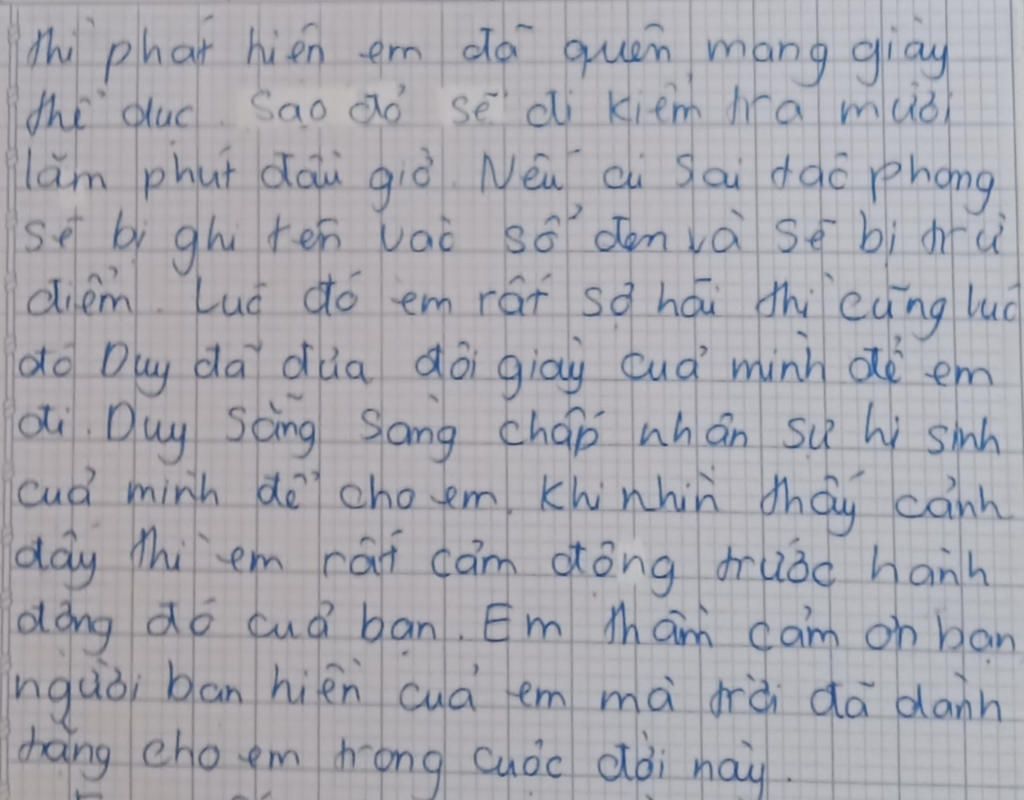 thì phát hiện em đã quên mang giày
thể dục. Sao đỏ sẽ đi kiểm tra mười
lăm phút đầu giờ. Nếu ai sai tác phong
sẽ bị ghi tên vào sổ đen và sẽ bị trừ
điểm. Lúc đó em rất sợ hãi thì cùng lúc
đó Duy đã đưa đôi giày của mình để em
đi. Duy sẵng sàng chấp nhận sự hi sinh
của mình để cho em. Khi nhìn thấy cảnh
đấy thì em rất cảm động trước hành
động đó của bạn. Em thầm cảm ơn bạn
người bạn hiền của em mà trời đã dành
tặng cho em trong cuộc đời này.